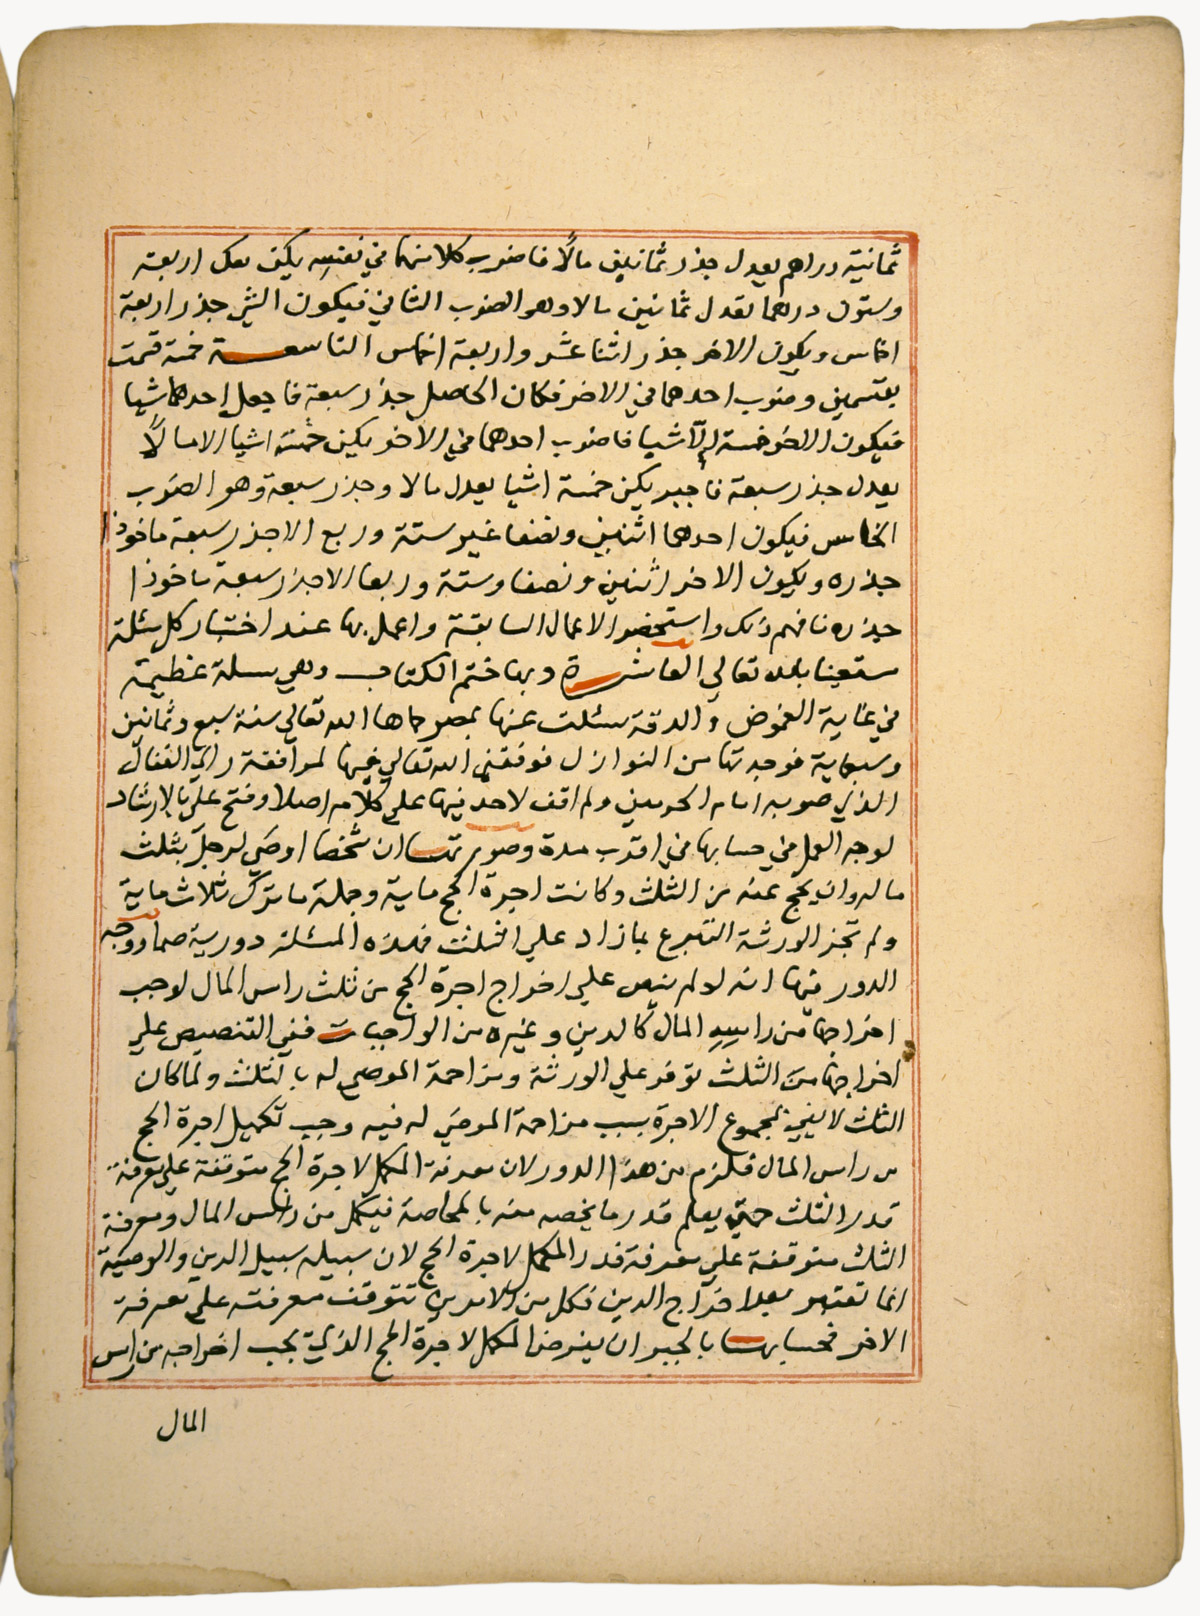 ثمانية دراهم يعدل جذر ثمانين مالًا فاضرب كلا منهما في نفسه يكن معك اربعة
وستون درهما تعدل ثمانين مالا وهو الضرب الثاني فيكون الشي جذر اربعة
اخماس ويكون الاخر جذر اثنا عشر واربعة اخماس التاسعة خمسة قسمت
بقسمين وضرب احدهما في الاخر فكان الحاصل جذر سبعة فاجعل احدهما شيا
فيكون الاخر خمسة الا شيا فاضرب احدهما في الاخر يكن خمسة اشيا الا مالًا
يعدل جذر سبعة فاجبر يكن خمسة اشيا يعدل مالا وجذر سبعة وهو الضرب
الخامس فيكون احدهما اثنين ونصفا غير ستة وربع الا جذر سبعة ماخوذا
جذره ويكون الاخر اثنين ونصفا وستة وربعا الا جذر سبعة ماخوذا
جذره فافهم ذلك واستحضر الاعمال السابقة واعمل بها عند اختبار كل مسئلة
مستعينا بالله تعالي العاشرة وبها ختم الكتاب وهي مسلة عظيمة
في غاية الغموض والدقة سئلت عنها بمصر حماها الله تعالي سنة سبع وثمانين
وسبعماية فوجدتها من النوازل فوفقني الله تعالي فيها لموافقة راي القفال
الذي صوبه امام الحرمين ولم اقف لاحد فيها علي كلامه اصلا وفتح علي بالارشاد
لوجه العمل في حسابها في اقرب مدة وصورتها ان شخصا اوصي لرجل بثلث
ماله وان يحج عنه من الثلث وكانت اجرة الحج ماية وجملة ما ترك ثلاث ماية
ولم تجز الورثة التبرع بما زاد علي الثلث فهذه المسئلة دورية صما ووجه
الدور فيها انه لو لم ينص علي اخراج اجرة الحج من ثلث راس المال لوجب
اخراجها من راس المال كالدين وغيره من الواجبات ففي التنصيص علي
اخراجها من الثلث توفر علي الورثة ومزاحمة الموصي له بالثلث ولما كان
الثلث لا يفي بمجموع الاجرة بسبب مزاحمة الموصي له فيه وجب تكميل اجرة الحج
من راس المال فلزم من هذا الدور لان معرفة المكمل لاجرة الحج متوقفة علي معرفة
قدر الثلث حتي يعلم قدر ما يخصه منه بالمحاصة فيكمل من راس المال ومعرفة
الثلث متوقفة علي معرفة قدر المكمل لاجرة الحج لان سبيله سبيل الدين والوصية
انما تعتبر بعد اخراج الدين فكل من الامرين تتوقف معرفته علي معرفة
الاخر فحسابها بالجبر ان يفرض المكمل لاجرة الحج الذي يجب اخراجه من راس
المال